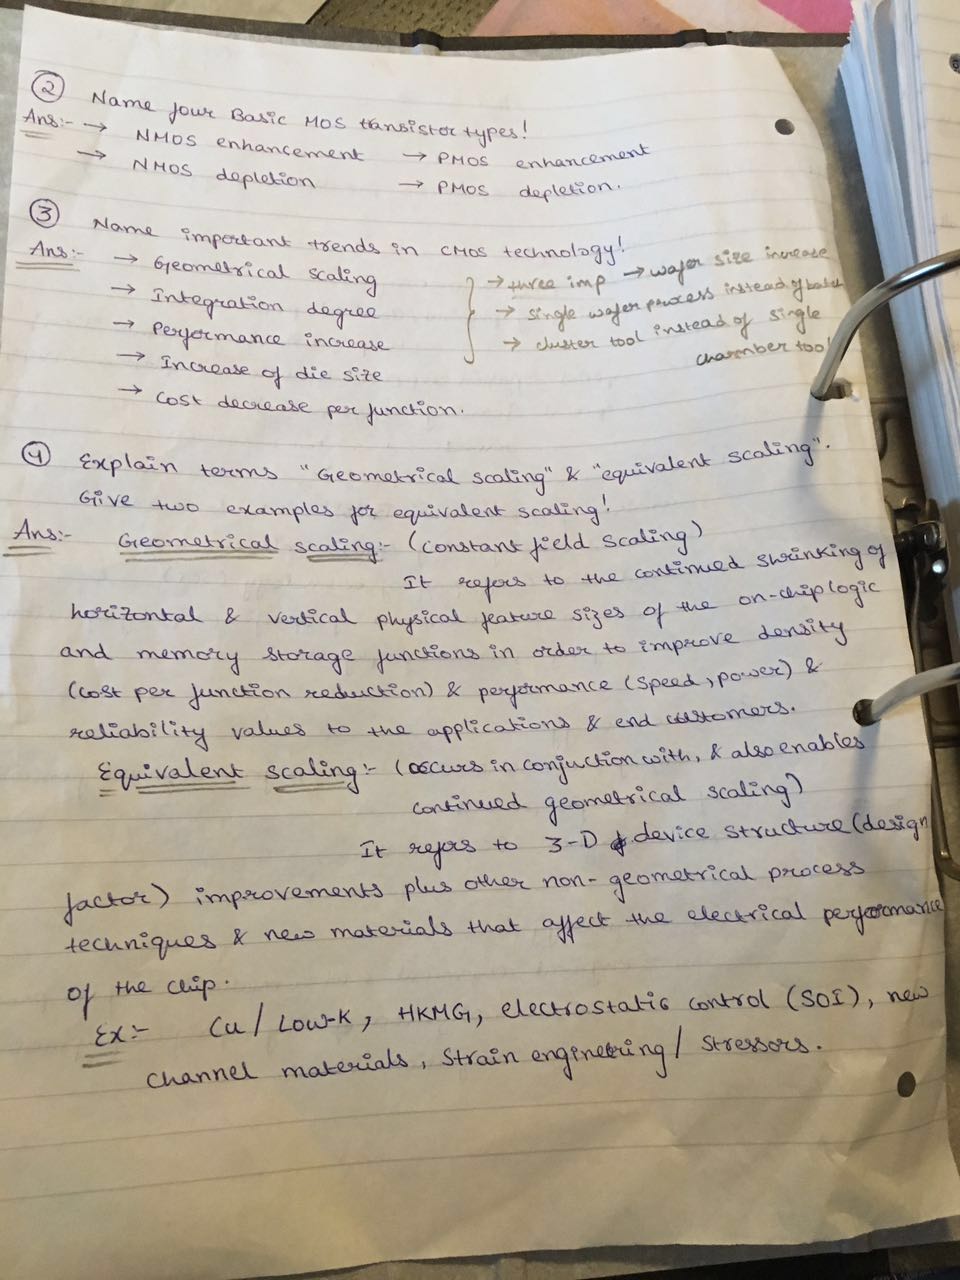 ② Name four Basic MOS transistor types!
Ans:- → NMOS enhancement → PMOS enhancement
→ NMOS depletion → PMOS depletion.
③ Name important trends in CMOS technology!
Ans:- → Geometrical scaling
→ Integration degree
→ Performance increase
→ Increase of die size
→ Cost decrease per function.
→ three imp → wafer size increase
→ single wafer process instead of batch
→ cluster tool instead of single
chamber tool
④ Explain terms "Geometrical scaling" & "equivalent scaling".
Give two examples for equivalent scaling!
Ans:- Geometrical scaling:- (constant field scaling)
It refers to the continued shrinking of
horizontal & vertical physical feature sizes of the on-chip logic
and memory storage functions in order to improve density
(cost per function reduction) & performance (speed, power) &
reliability values to the applications & end customers.
Equivalent scaling:- (occurs in conjuction with, & also enables
continued geometrical scaling)
It refers to 3-D device structure (design
factor) improvements plus other non-geometrical process
techniques & new materials that affect the electrical performance
of the chip.
Ex:- Cu/Low-K, HKMG, electrostatic control (SOI), new
channel materials, Strain engineering/ Stressors.